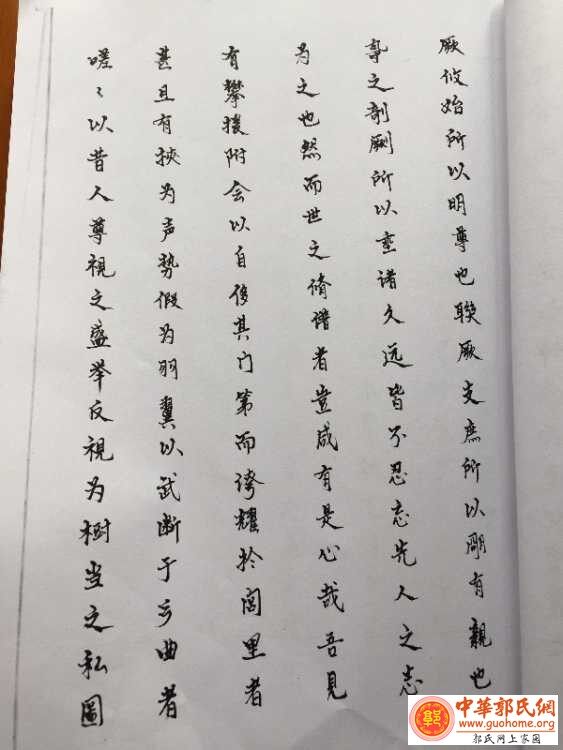 厥攸始所以明尊也聫厥支庶所以明有親也
尊之剞劂所以垂诸久远皆不忍忘先人之志
为之也然而世之脩谱者豈咸有是心哉吾見
有攀援附会以自侈其门第而誇耀於閭里者
甚且有挾为声势假为羽翼以武断于乡曲者
嗟〻以昔人尊視之盛举反視为樹党之私圖
中華郭氏網
www.guohome.org
郭氏网上家园